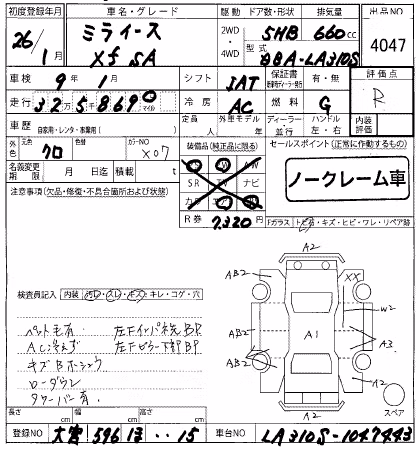 初度登録年月 車名・グレード 駆動 ドア数・形状 排気量 出品NO
26/1月 ミライース Xf SA 2WD・4WD 5HB 660cc 4047
型式 DBA-LA310S
車検 9年1月 シフト IAT 保証書 有・無 評価点
走行 32,5869 0 マイル 冷房 AC 燃料 G R
車歴 自家用・レンタ・事業用( ) 定員 人 外車モデル 年 ディーラー 並行 ハンドル 左・右 内装評価
外色 元色 クロ 色替 カラーNO X07 装備品(純正品に限る) セールスポイント(正常に作動するもの)
名義変更期限 月 日迄 積載 t SR ナビ ノークレーム車
注意事項(欠品・修復・不具合箇所および状態)
R券 7,320 Fガラス トビ石・キズ・ヒビ・ワレ・リペア跡
A2
AB2 XX
検査員記入 内装 汚レ・スレ・キズ・キレ・コゲ・穴
W2
ペット毛有 左Fインパネ先BP AB2 A1
ACガス 左Fピラー下部BP A3
キズBホシュウ AB2
ローダウン A2
タワーバー有 A2 スペア
長さ cm 幅 cm 高さ cm
登録NO 大宮 596 ほ ・・15 車台NO LA310S-1047443